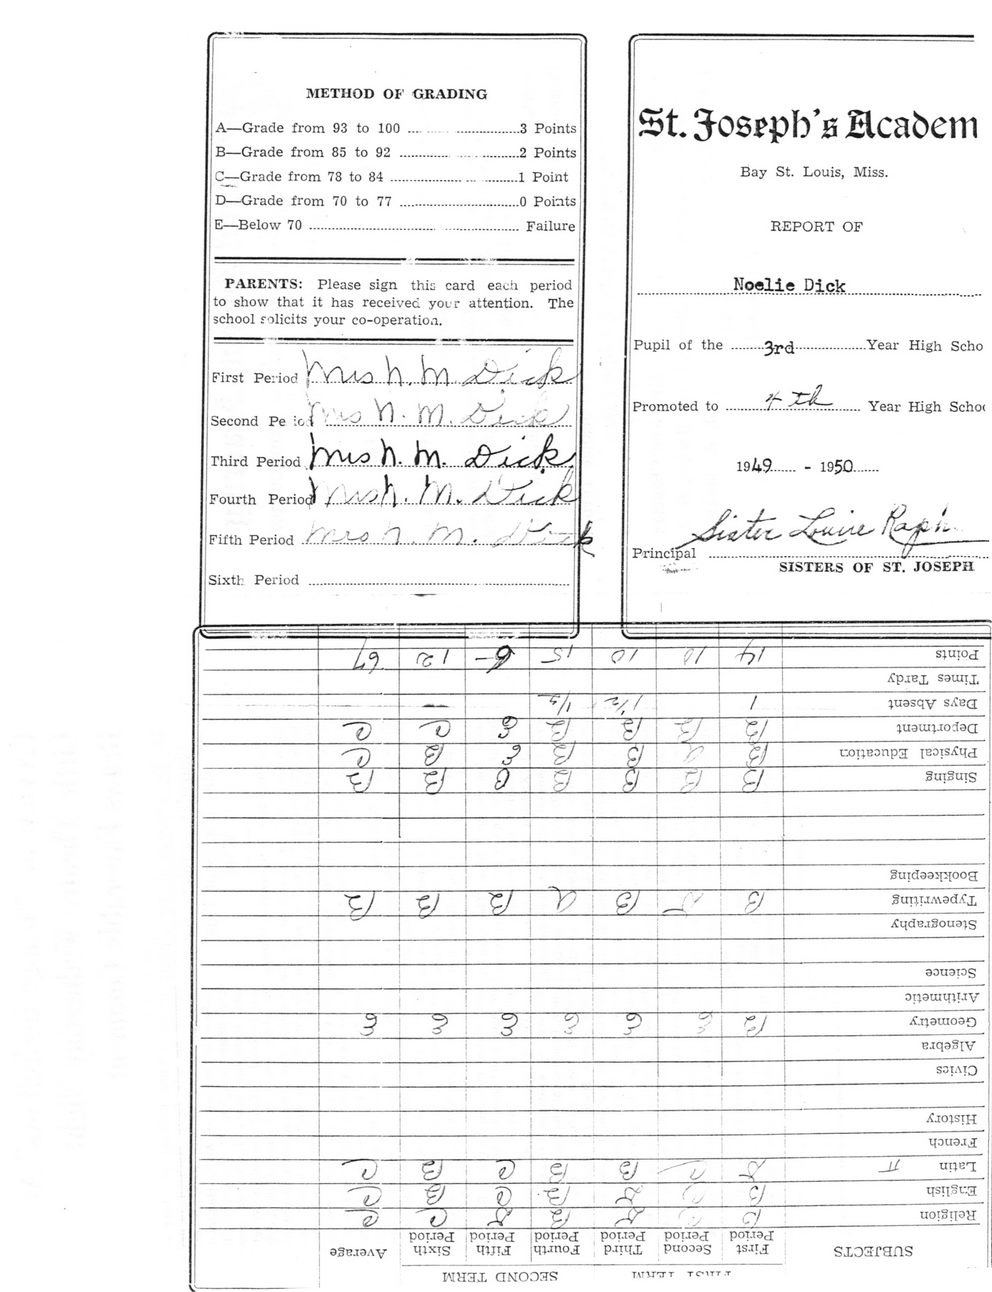 METHOD OF GRADING
A—Grade from 93 to 100 ........ 3 Points
B—Grade from 85 to 92 ........ 2 Points
C—Grade from 78 to 84 ........ 1 Point
D—Grade from 70 to 77 ........ 0 Points
E—Below 70 ........ Failure
PARENTS: Please sign this card each period
to show that it has received your attention. The
school solicits your co-operation.
First Period Mrs N. M. Dick
Second Period Mrs N. M. Dick
Third Period Mrs N. M. Dick
Fourth Period Mrs N. M. Dick
Fifth Period Mrs N. M. Dick
Sixth Period
St. Joseph's Academ
Bay St. Louis, Miss.
REPORT OF
Noelie Dick
Pupil of the 3rd Year High Scho
Promoted to 4th Year High Schoo
1949 - 1950
Sister Louise Raph
Principal
SISTERS OF ST. JOSEPH
FIRST TERM SECOND TERM
SUBJECTS First Period Second Period Third Period Fourth Period Fifth Period Sixth Period Average
Religion B C B C C
English B C B C B C
Latin II B B C B C
French
History
Civics
Algebra
Geometry B E E E E E E
Arithmetic
Science
Stenography
Typewriting B B A B B B
Bookkeeping
Singing B B B B C B B
Physical Education B A B B E B C
Deportment B B B B E C C
Days Absent 1 1½
Times Tardy
Points 14 10 10 15 6 12 67